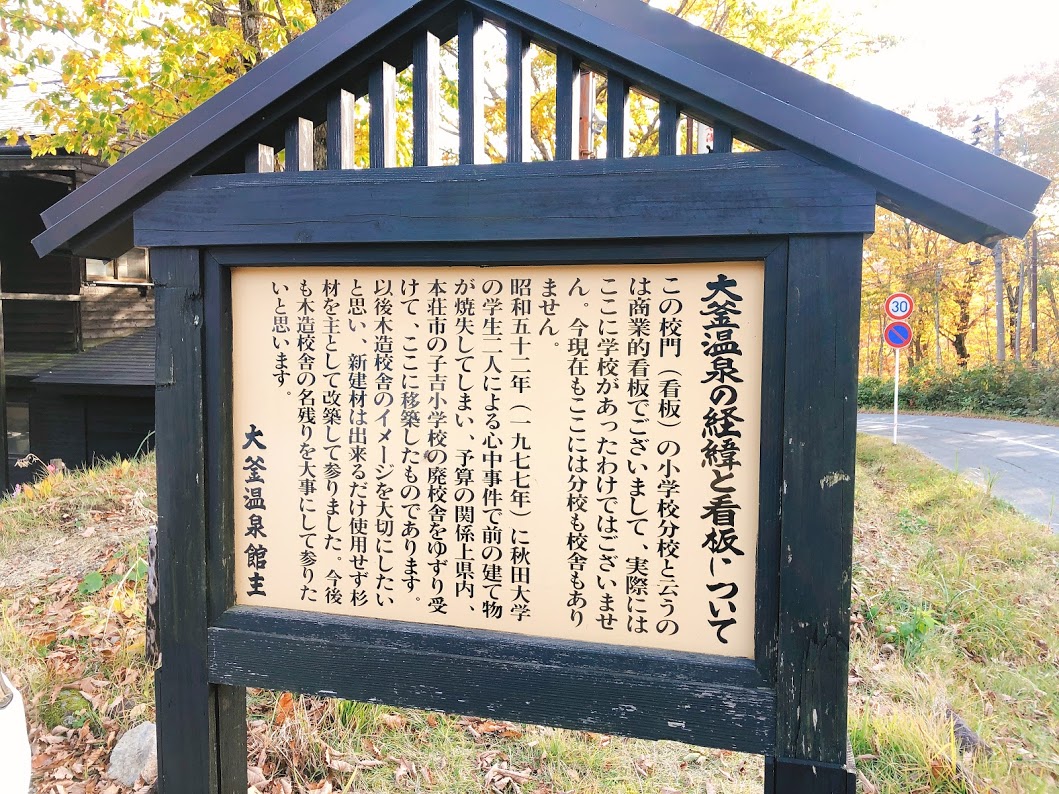 大釜温泉の経緯と看板について
この校門（看板）の小学校分校と云うの
は商業的看板でございまして、実際には
ここに学校があったわけではございませ
ん。今現在もここには分校も校舎もあり
ません。
昭和五十二年（一九七七年）に秋田大学
の学生二人による心中事件で前の建て物
が焼失してしまい、予算の関係上県内、
本荘市の子吉小学校の廃校舎をゆずり受
けて、ここに移築したものであります。
以後木造校舎のイメージを大切にしたい
と思い、新建材は出来るだけ使用せず杉
材を主として改築して参りました。今後
も木造校舎の名残りを大事にして参りた
いと思います。
大釜温泉館主
30